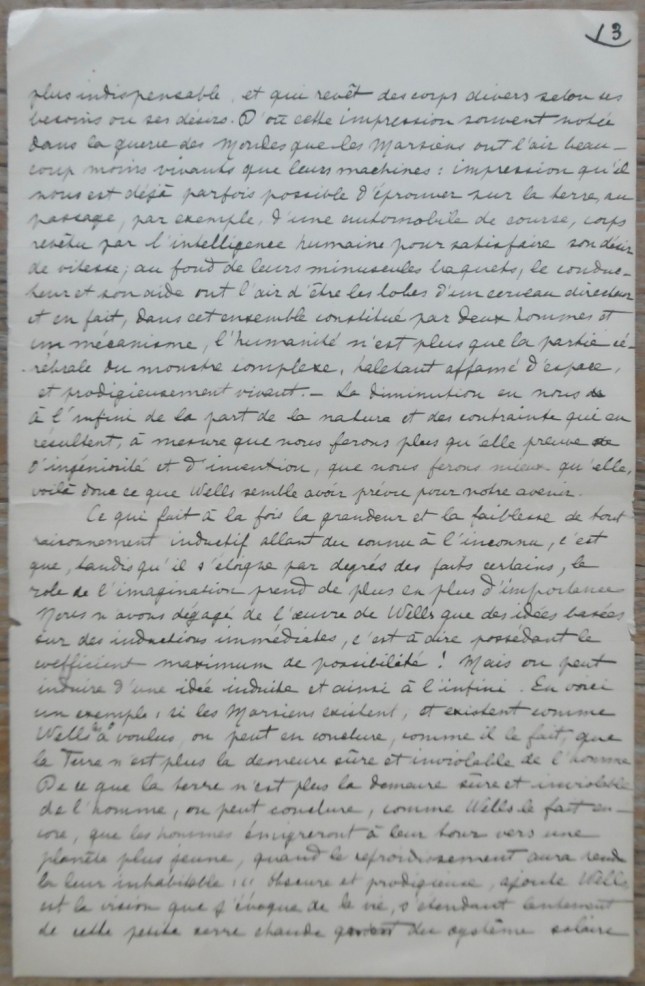 13
plus indispensable, et qui revêt des corps divers selon ses
besoins ou ses désirs. D'où cette impression souvent notée
dans la guerre des Mondes que les Marsiens ont l'air beau-
coup moins vivants que leurs machines : impression qu'il
nous est déjà parfois possible d'éprouver sur la terre, au
passage, par exemple, d'une automobile de course, corps
revêtu par l'intelligence humaine pour satisfaire son désir
de vitesse ; au fond de leurs minuscules baquets, le conduc-
teur et son aide ont l'air d'être les lobes d'un cerveau directeur
et en fait, dans cet ensemble constitué par deux hommes et
un mécanisme, l'humanité n'est plus que la partie cé-
rébrale du monstre complexe, haletant affamé d'espace,
et prodigieusement vivant. — La diminution en nous
à l'infini de la part de la nature et des contraintes qui en
résultent, à mesure que nous ferons plus qu'elle preuve
d'ingéniosité et d'invention, que nous ferons mieux qu'elle,
voilà donc ce que Wells semble avoir prévu pour notre avenir.
Ce qui fait à la fois la grandeur et la faiblesse de tout
raisonnement inductif allant du connu à l'inconnu, c'est
que, tandis qu'il s'éloigne par degrés des faits certains, le
role de l'imagination prend de plus en plus d'importance
Nous n'avons dégagé de l'œuvre de Wells que des idées basées
sur des inductions immédiates, c'est à dire possédant le
coefficient maximum de possibilité ! Mais on peut
induire d'une idée induite et ainsi à l'infini. En voici
un exemple : si les Marsiens existent, et existent comme
Wells l'a voulu, on peut en conclure, comme il le fait, que
la Terre n'est plus la demeure sûre et inviolable de l'homme
De ce que la terre n'est plus la demeure sûre et inviolable
de l'homme, on peut conclure, comme Wells le fait en-
core, que les hommes émigreront à leur tour vers une
planète plus jeune, quand le refroidissement aura rendu
la leur inhabitable !!! Obscure et prodigieuse, ajoute Wells
est la vision que j'évoque de la vie, s'étendant lentement
de cette petite serre chaude du système solaire